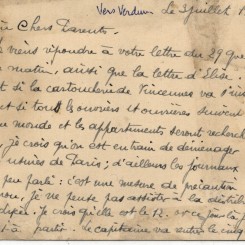 Vers Verdun Le 3 juillet 1
Chers Parents.
viens répondre à votre lettre du 29 que
matin, ainsi que la lettre d'Elise.
si la cartoucherie de Vincennes va
et si tous les ouvriers et ouvrières suivent
monde et les appartements seront
je crois qu'on est en train de déménager
usines de Paris; d'ailleurs les journaux
peu parlé: c'est une mesure de précaution
je ne pense pas assister à la
Je crois qu'elle est le 12.
à partir. le capitaine va rentrer le